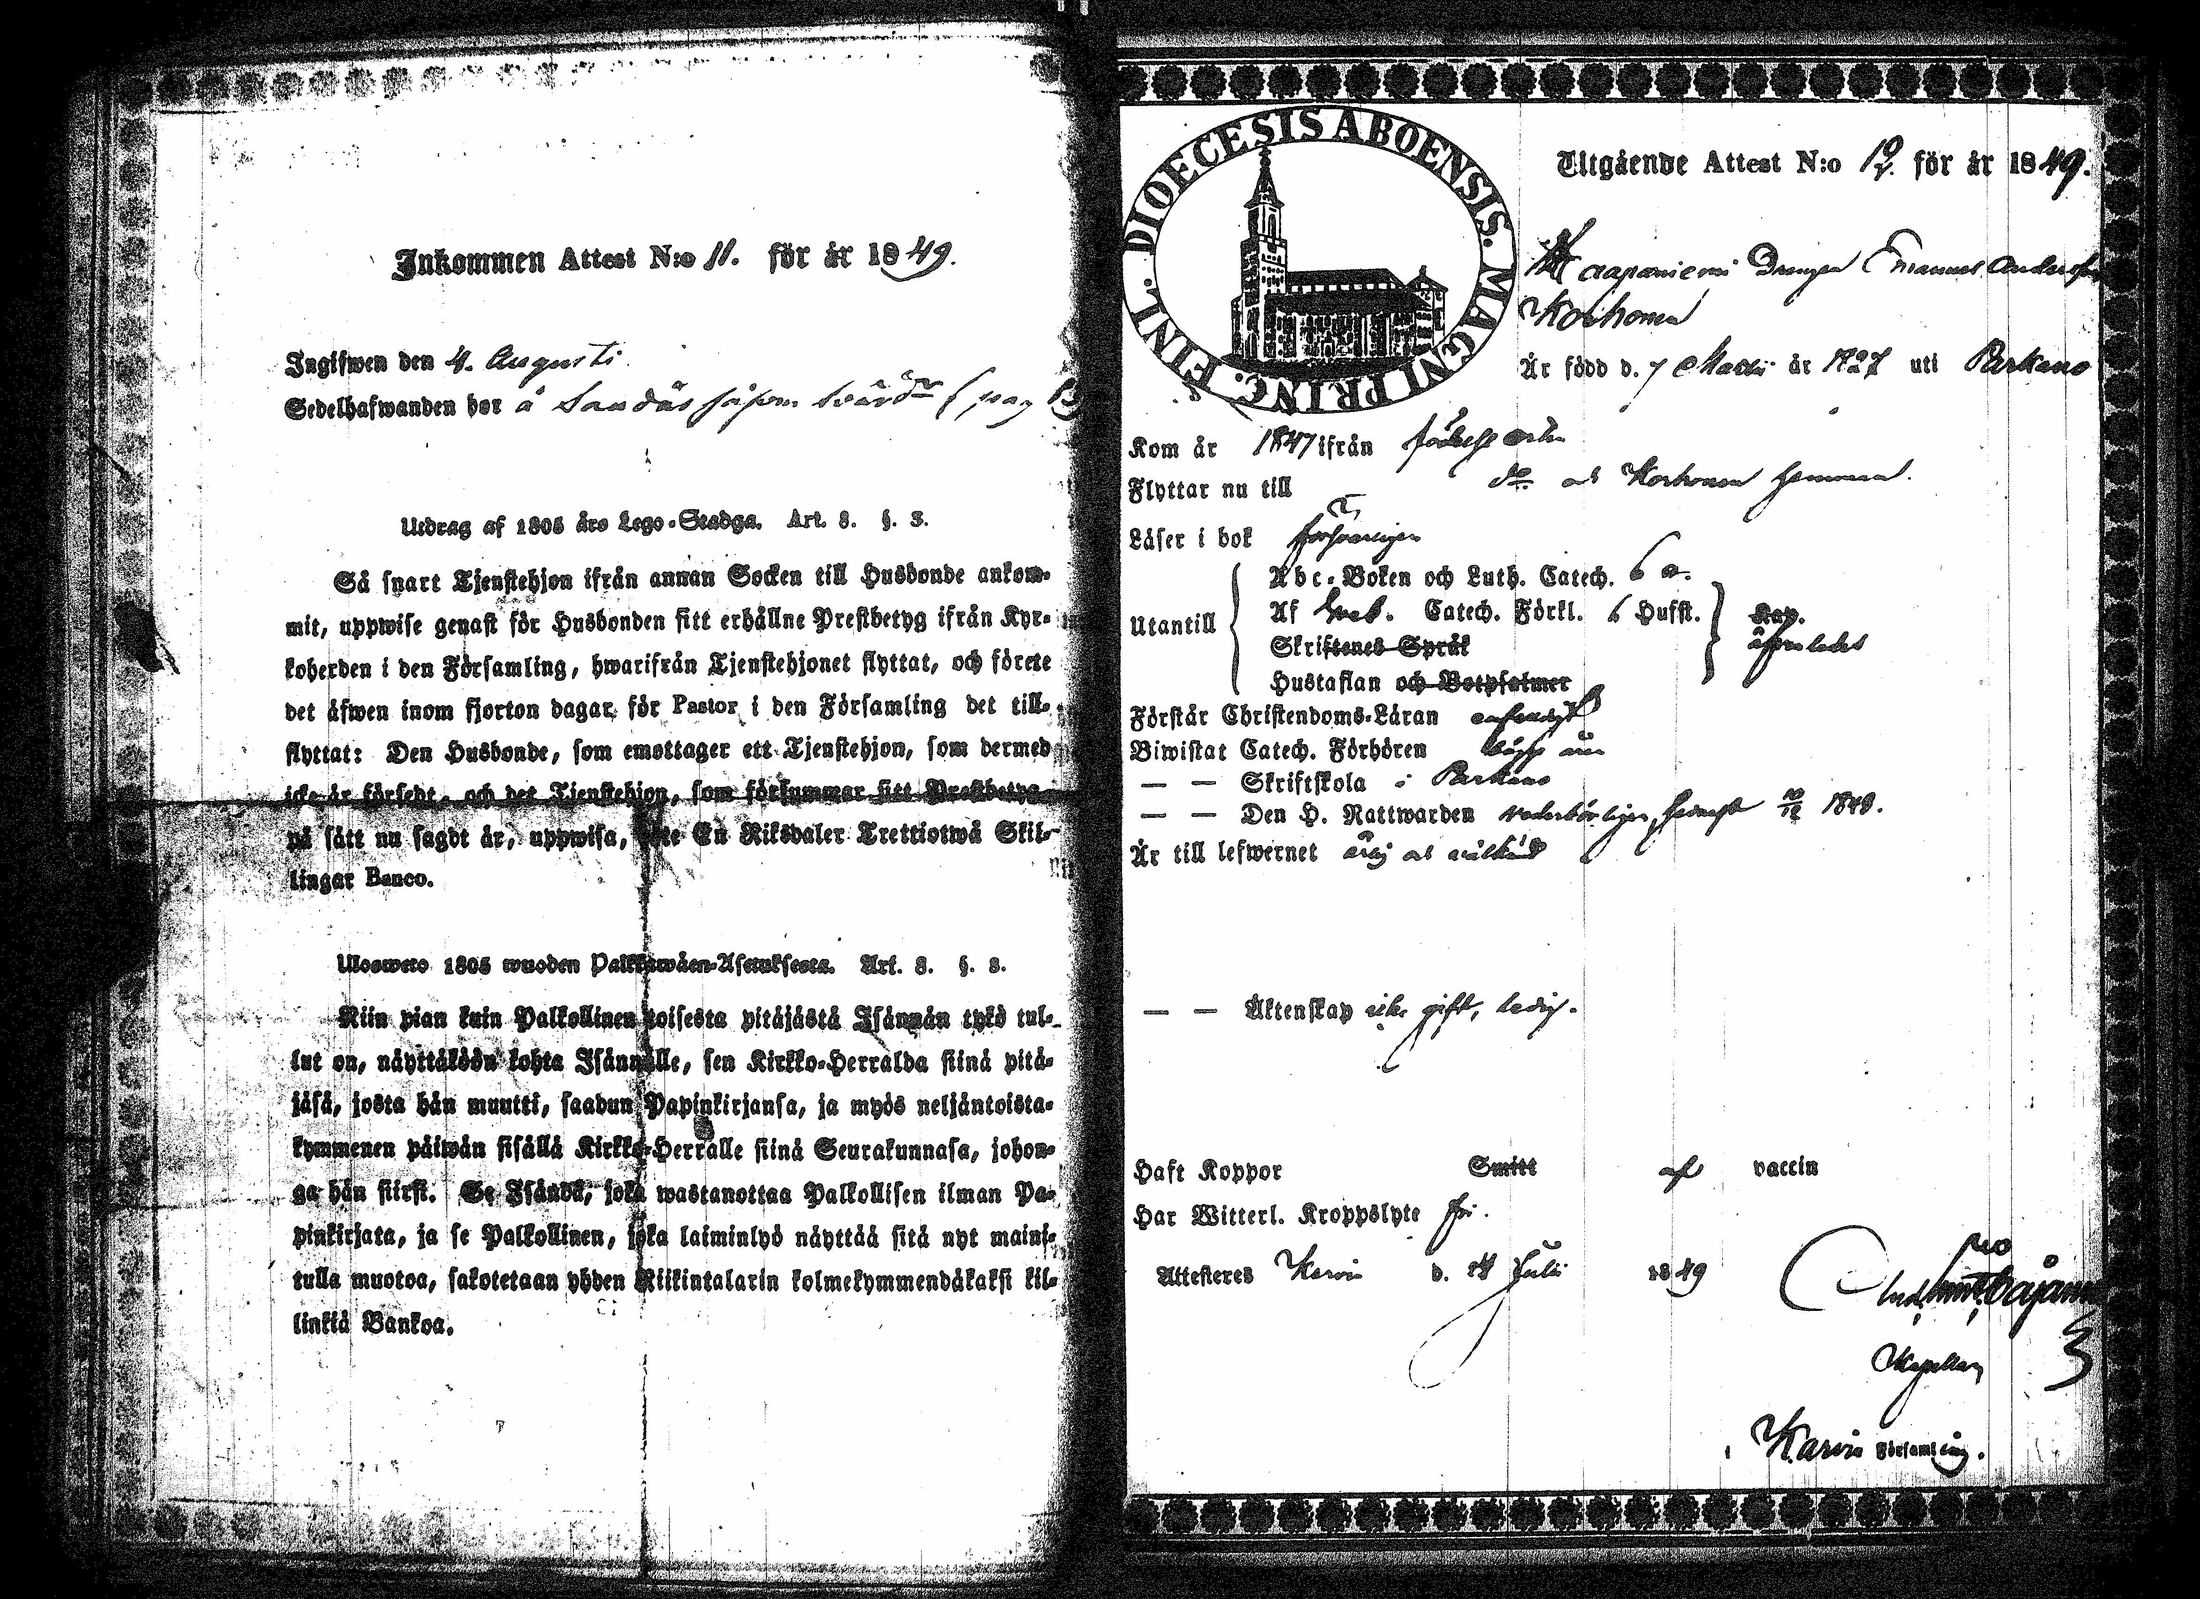 Inkommen Attest N:o 11. för år 1849.
Ingifwen den 4. Augusti
Sedelhafwanden bor å Sandås såsom
Utdrag af 1805 års Lego-Stadga. Art. 8. §. 3.
Så snart Tjenstehjon ifrån annan Socken till Husbonde ankom-
mit, uppwise genast för Husbonden sitt erhållne Prestbetyg ifrån Kyr-
koherden i den Församling, hwarifrån Tjenstehjonet flyttat, och förete
det äfwen inom fjorton dagar för Pastor i den Församling det till-
flyttat: Den Husbonde, som emottager ett Tjenstehjon, som dermed
icke är försedt, och det Tjenstehjon, som försummar sitt Prestbetyg
på sätt nu sagdt är, uppwisa, böte En Riksdaler Trettiotwå Skil-
lingar Banco.
Ulosweto 1805 wuoden Palkkawäen-Asetuksesta. Art. 8. §. 3.
Niin pian kuin Palkollinen toisesta pitäjästä Isännän tykö tul-
lut on, näyttäköön kohta Isännälle, sen Kirkko-Herralda siinä pitä-
jäsä, josta hän muutti, saadun Papinkirjansa, ja myös neljäntoista-
kymmenen päiwän sisällä Kirkko-Herralle siinä Seurakunnasa, johon-
ga hän siirsi. Se Isändä, joka wastanottaa Palkollisen ilman Pa-
pinkirjata, ja se Palkollinen, joka laiminlyö näyttää sitä nyt maini-
tulla muotoa, sakotetaan yhden Riikintalarin kolmekymmendäkaksi kil-
linkiä Bankoa.
DIOECESIS ABOENSIS. MAGNI PRINC. FINL.
Utgående Attest N:o 12. för år 1849.
Haapaniemi Drengen Emanuel Andersson
Korhonen
Är född d. 7 Martii år 1827 uti Parkano
Kom år 1847 ifrån födelse orten
Flyttar nu till do och Korhonen hemman.
Läser i bok försvarligen
Abc-Boken och Luth. Catech. 6 a.
Utantill Af Sveb. Catech. Förkl. 6 Hufst. Kap.
Skriftenes Språk
Hustaflan och Botpsalmer
Förstår Christendoms-Läran enfaldigt
Biwistat Catech. Förhören
— — Skriftskola i Parkano
— — Den H. Nattwarden vederbörligen, senast 1848.
Är till lefwernet ärlig och välkänd
— — Äktenskap icke gift, ledig.
Haft Koppor Smitt af vaccin
Har Witterl. Kroppslyte fri.
Attesteres Karvia d. 14 Julii 1849
pro
Kapellan
i Karvia Församling.